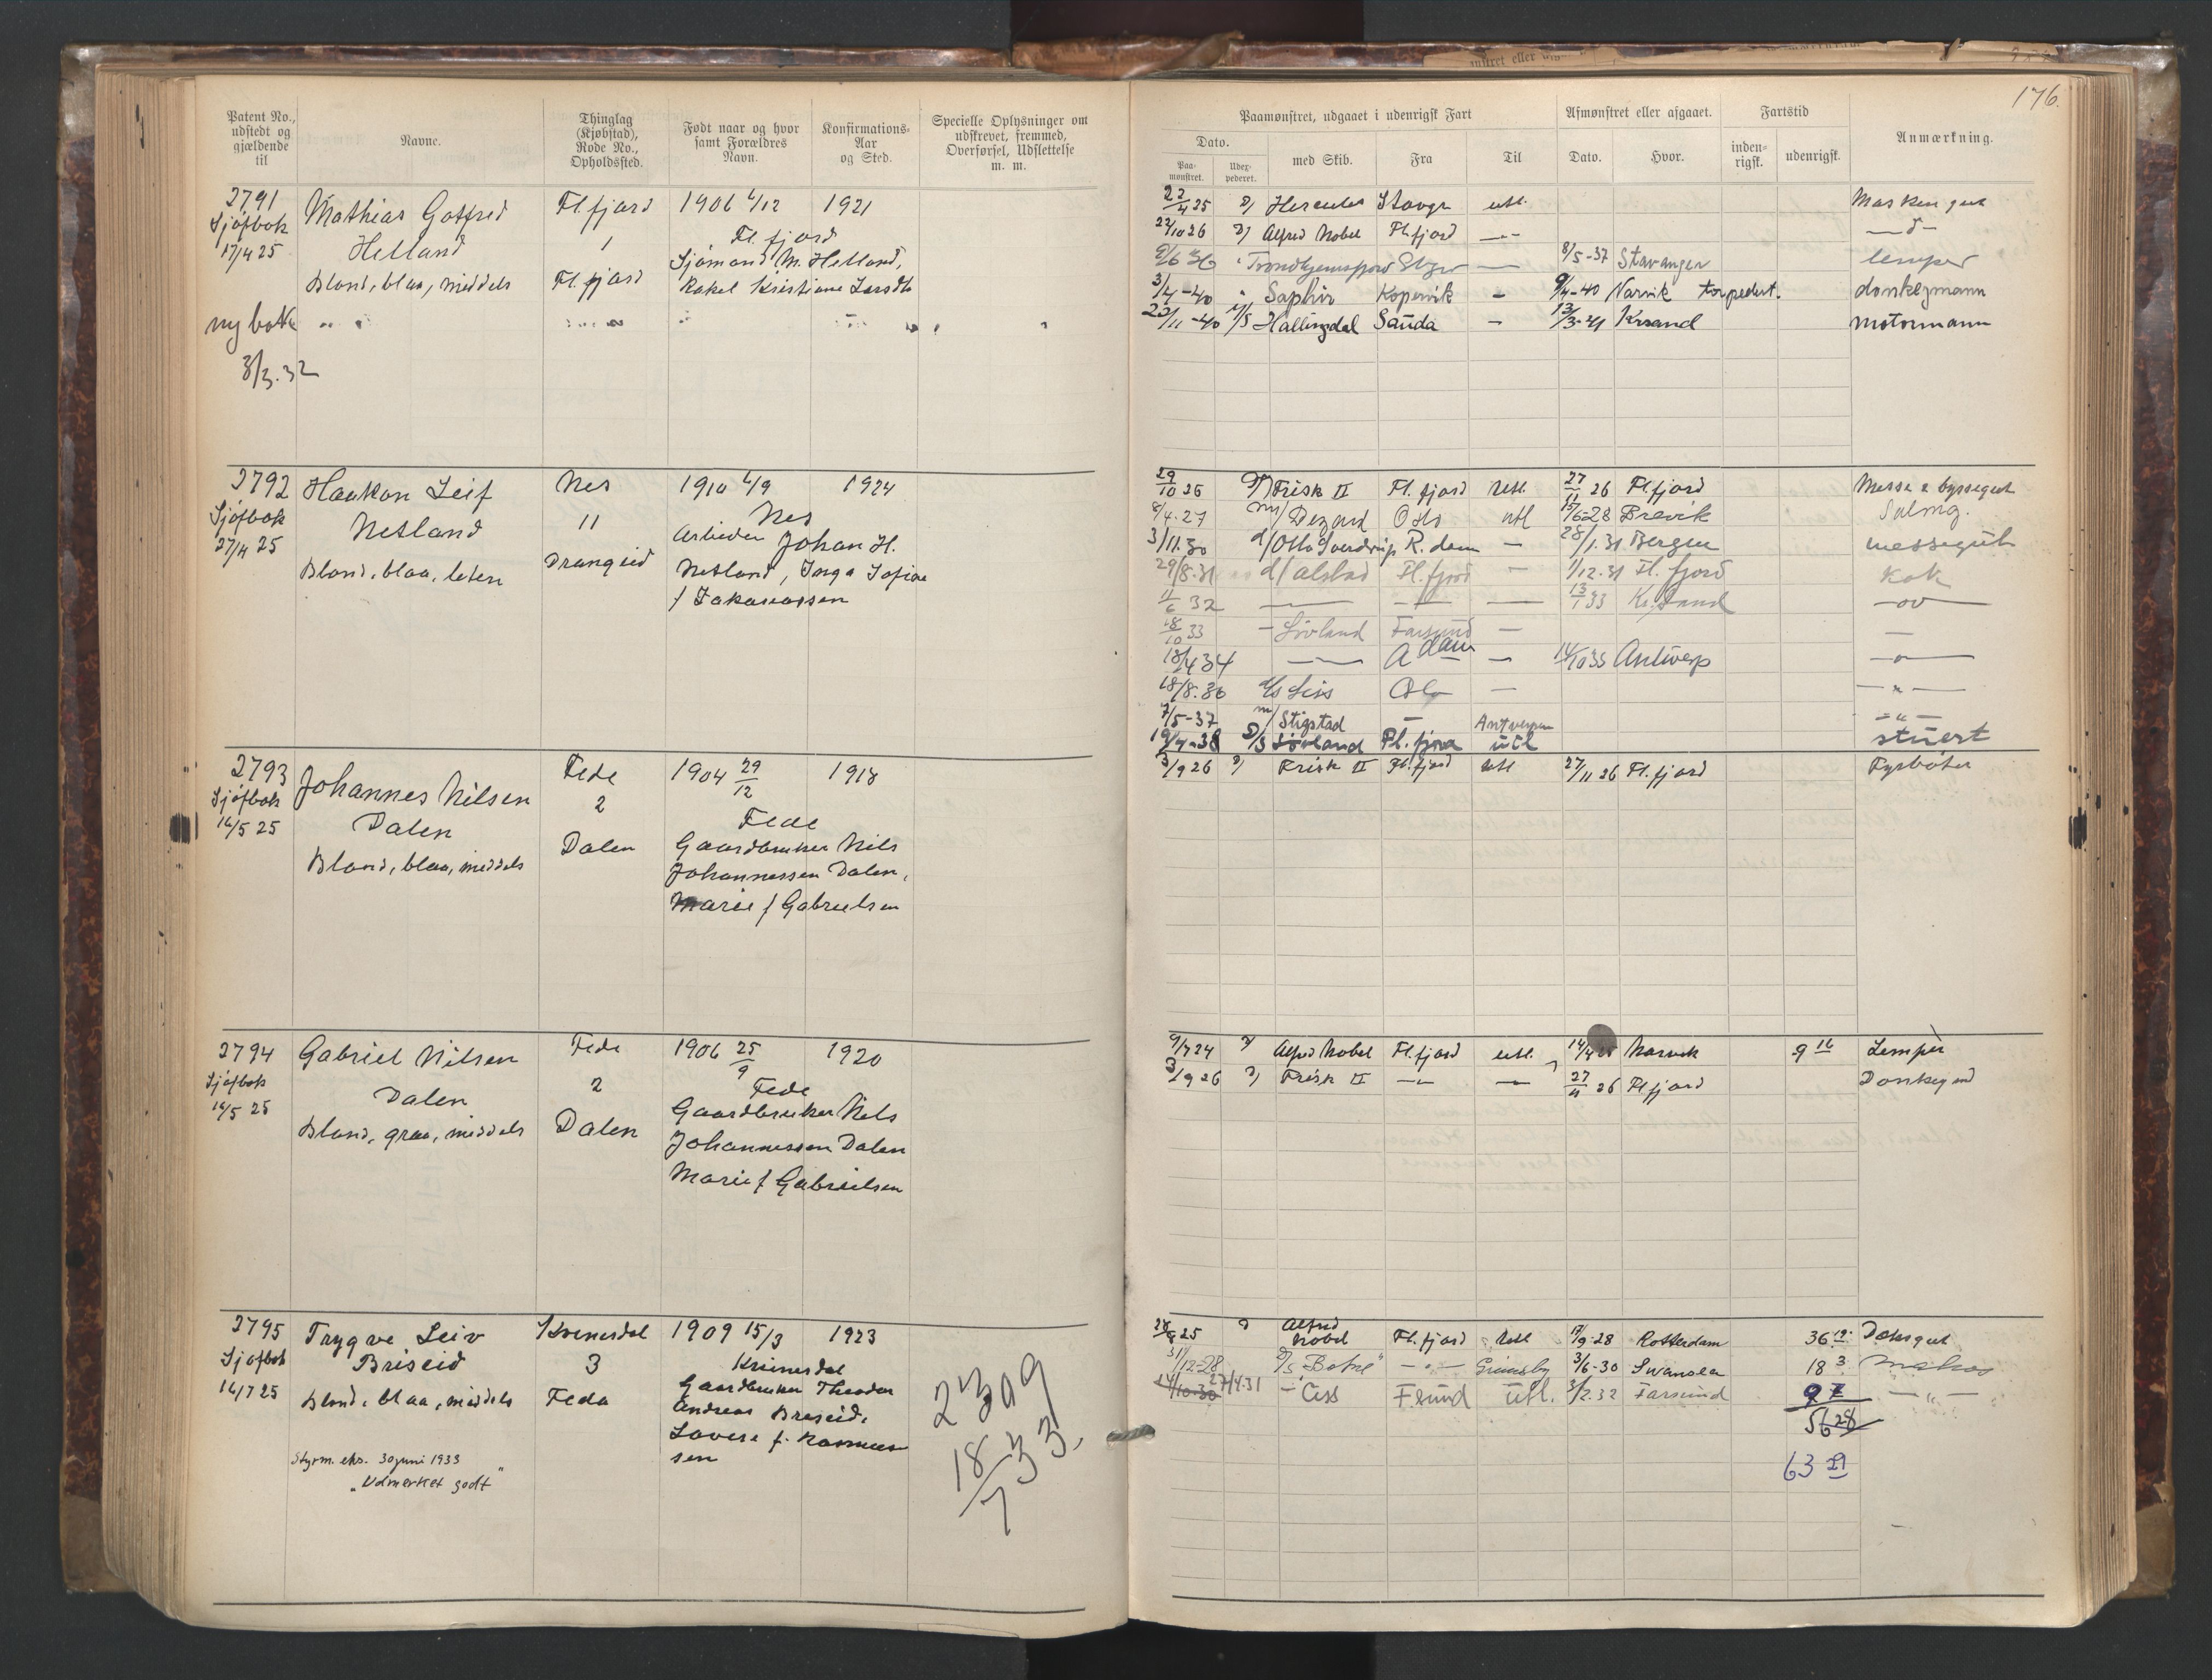 176.
Patent No., udstedt og gjældende til
Navne.
Thinglag (Kjøbstad), Rode No., Opholdssted.
Født naar og hvor samt Forældres Navn.
Konfirmations-Aar og Sted.
Specielle Oplysninger om udskrevet, fremmed, Overførsel, Udslettelse m. m.
Paamønstret, udgaaet i udenrigsk Fart
Afmønstret eller afgaaet.
Fartstid
Anmærkning.
Dato.
Paa-mønstret.
Udex-pederet.
med Skib.
Fra
Til
Dato.
Hvor.
inden-rigsk.
udenrigsk.
2791 Mathias Gotfred Fl.fjord 1906 4/12 1921
Sjøfbok Helland 1 Fl.fjord
17/4 25 Sjømand M. Helland,
Blond, blaa, middels Fl.fjord Rakel Kristiane Larsdtr
ny bok
8/3.32
22/4 25 D/ Hercules Stavgr utl. Maskingut
22/10 26 D/ Alfred Nobel Fl.fjord —"— —d—
9/6 36 " Trondhjemsfjord — 8/5-37 Stavanger lemper
3/4-40 " Saphir Kopervik — 9/4-40 Narvik torpedert. donkeymann
23/11-40 M/S Hallingdal Sauda — 13/3-41 Krsand motormann
2792 Haakon Leif Nes 1910 4/9 1924
Sjøfbok Netland 11 Nes
27/4 25 Arbeider Johan H.
Blond, blaa, leten Drangeid Netland, Inga Sofie
f Zakariassen
29/10 26 D/ Frisk II Fl.fjord Utl. 27/11 26 Fl.fjord Messe & byssegut
8/4.27 m/ Oslo utl 15/6-28 Brevik Salmg.
3/11.30 d/ Otto Sverdrup R.dam — 28/1.31 Bergen messegut
29/8.31 d/ Alstad Fl.fjord — 1/12.31 Fl.fjord kok
11/6 32 — — — 13/1 33 Kr.sand —oo—
18/10 33 — Lovland Farsund — —
18/4 34 — A dam — 14/10 35 Antwerp —"—
18/8.36 d/s Liss Oslo — —"—
7/5-37 m/ Stigstad — Antwerpen —"—
19/4-38 D/S Lovland Fl.fjord utl stuert
2793 Johannes Nilsen Fede 1904 29/12 1918
Sjøfbok Dalen 2 Fede
16/5 25 Dalen Gaardbruker Nils
Blond, blaa, middels Johannessen Dalen,
Marie f Gabrielsen
3/9 26 D/ Frisk II Fl.fjord Utl 27/11 26 Fl.fjord Fyrbøter
2794 Gabriel Nilsen Fede 1906 25/9 1920
Sjøfbok Dalen 2 Fede
16/5 25 Gaardbruker Nils
Blond, graa, middels Dalen Johannessen Dalen
Marie f Gabrielsen
9/7 24 D/ Alfred Nobel Fl.fjord utl. Narvik 9 16 Lemper
3/9 26 D/ Frisk II —"— —"— 27/11 26 Fl.fjord Donkeymd
2795 Trygve Leiv Kvinesdal 1909 15/3 1923
Sjøfbok Briseid 3 Kvinesdal
16/7 25 Gaardbruker Theodor
Blond, blaa, middels Feda Andreas Breseid,
Lovise f. Rasmus-
sen
Styrm. eks. 30 juni 1933
"Udmerket godt"
2309
18/7 33.
28/8 25 D Alfred Nobel Fl.fjord Utl 9/9-28 Rotterdam 36 12 Dæksgut
31/12-28 D/S "Botne" —"— Grimsby 3/6-30 Swansea 18 3 Matros
14/10-30 27/4.31 — Ciss F.sund Utl. 3/2.32 Farsund 9 7 —"—
56 28
63 29